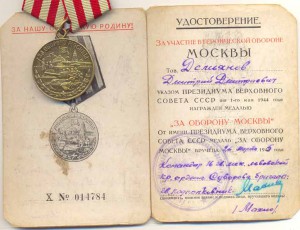 ЗА НАШУ СОВЕТСКУЮ РОДИНУ!
Х № 014784
УДОСТОВЕРЕНИЕ
ЗА УЧАСТИЕ В ГЕРОИЧЕСКОЙ ОБОРОНЕ
МОСКВЫ
Тов. Демьянов
Дмитрий Дмитриевич
УКАЗОМ ПРЕЗИДИУМА ВЕРХОВНОГО
СОВЕТА СССР от 1-го мая 1944 года
НАГРАЖДЕН МЕДАЛЬЮ
„ЗА ОБОРОНУ МОСКВЫ“
От имени ПРЕЗИДИУМА ВЕРХОВНОГО
СОВЕТА СССР МЕДАЛЬ „ЗА ОБОРОНУ
МОСКВЫ“ ВРУЧЕНА
Командир
ордена Суворова бригады